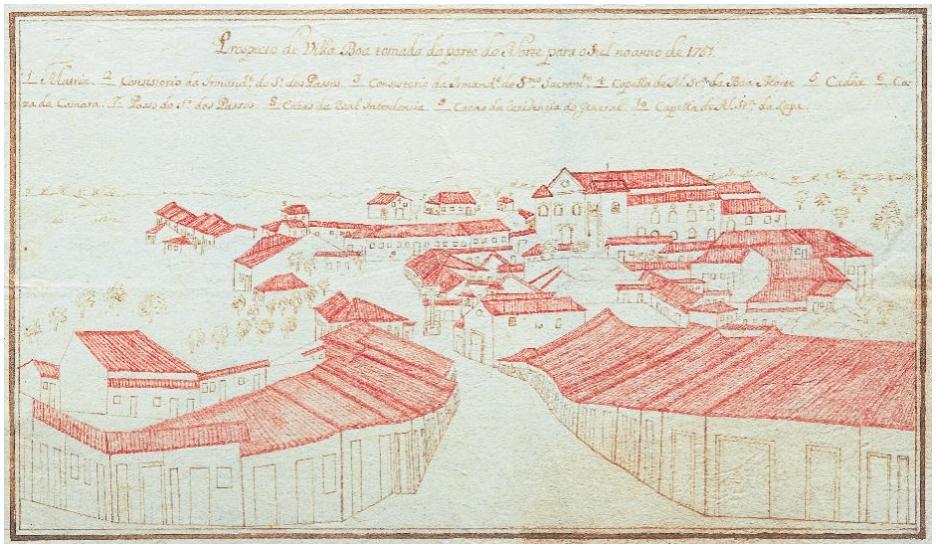 Prospecto de Villa Boa tomada da parte do Norte para o Sul no anno de 1751.
1 Matriz. 2 Consistorio da Irmand.e do Sr. dos Passos. 3 Consistorio da Irmand.e do S.mo Sacram.to 4 Capella de N. Sr.a da Boa Morte 5 Cadêa 6 Ca-
za da Camara. 7 Passo do Sr. dos Passos. 8 Cazas da Real Intendencia 9 Cazas da Rezidencia do General. 10 Capella de N. Sr.a da Lapa.